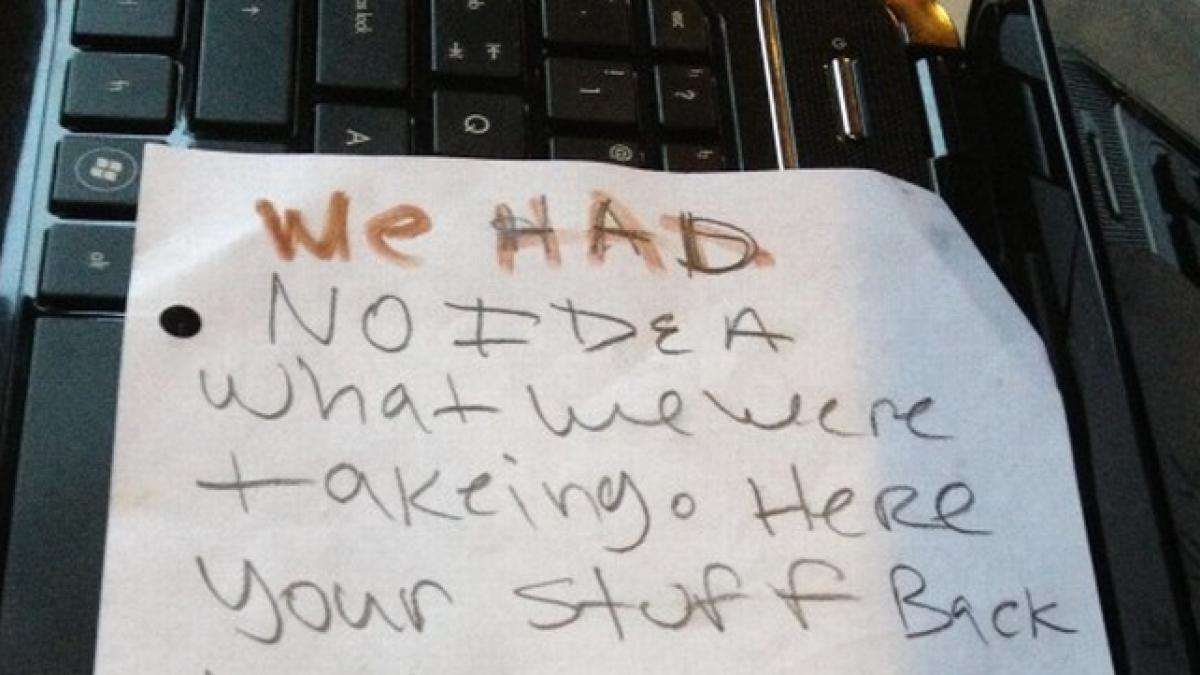 We HAD
NO IDEA
what we were
takeing. Here
your stuff Back